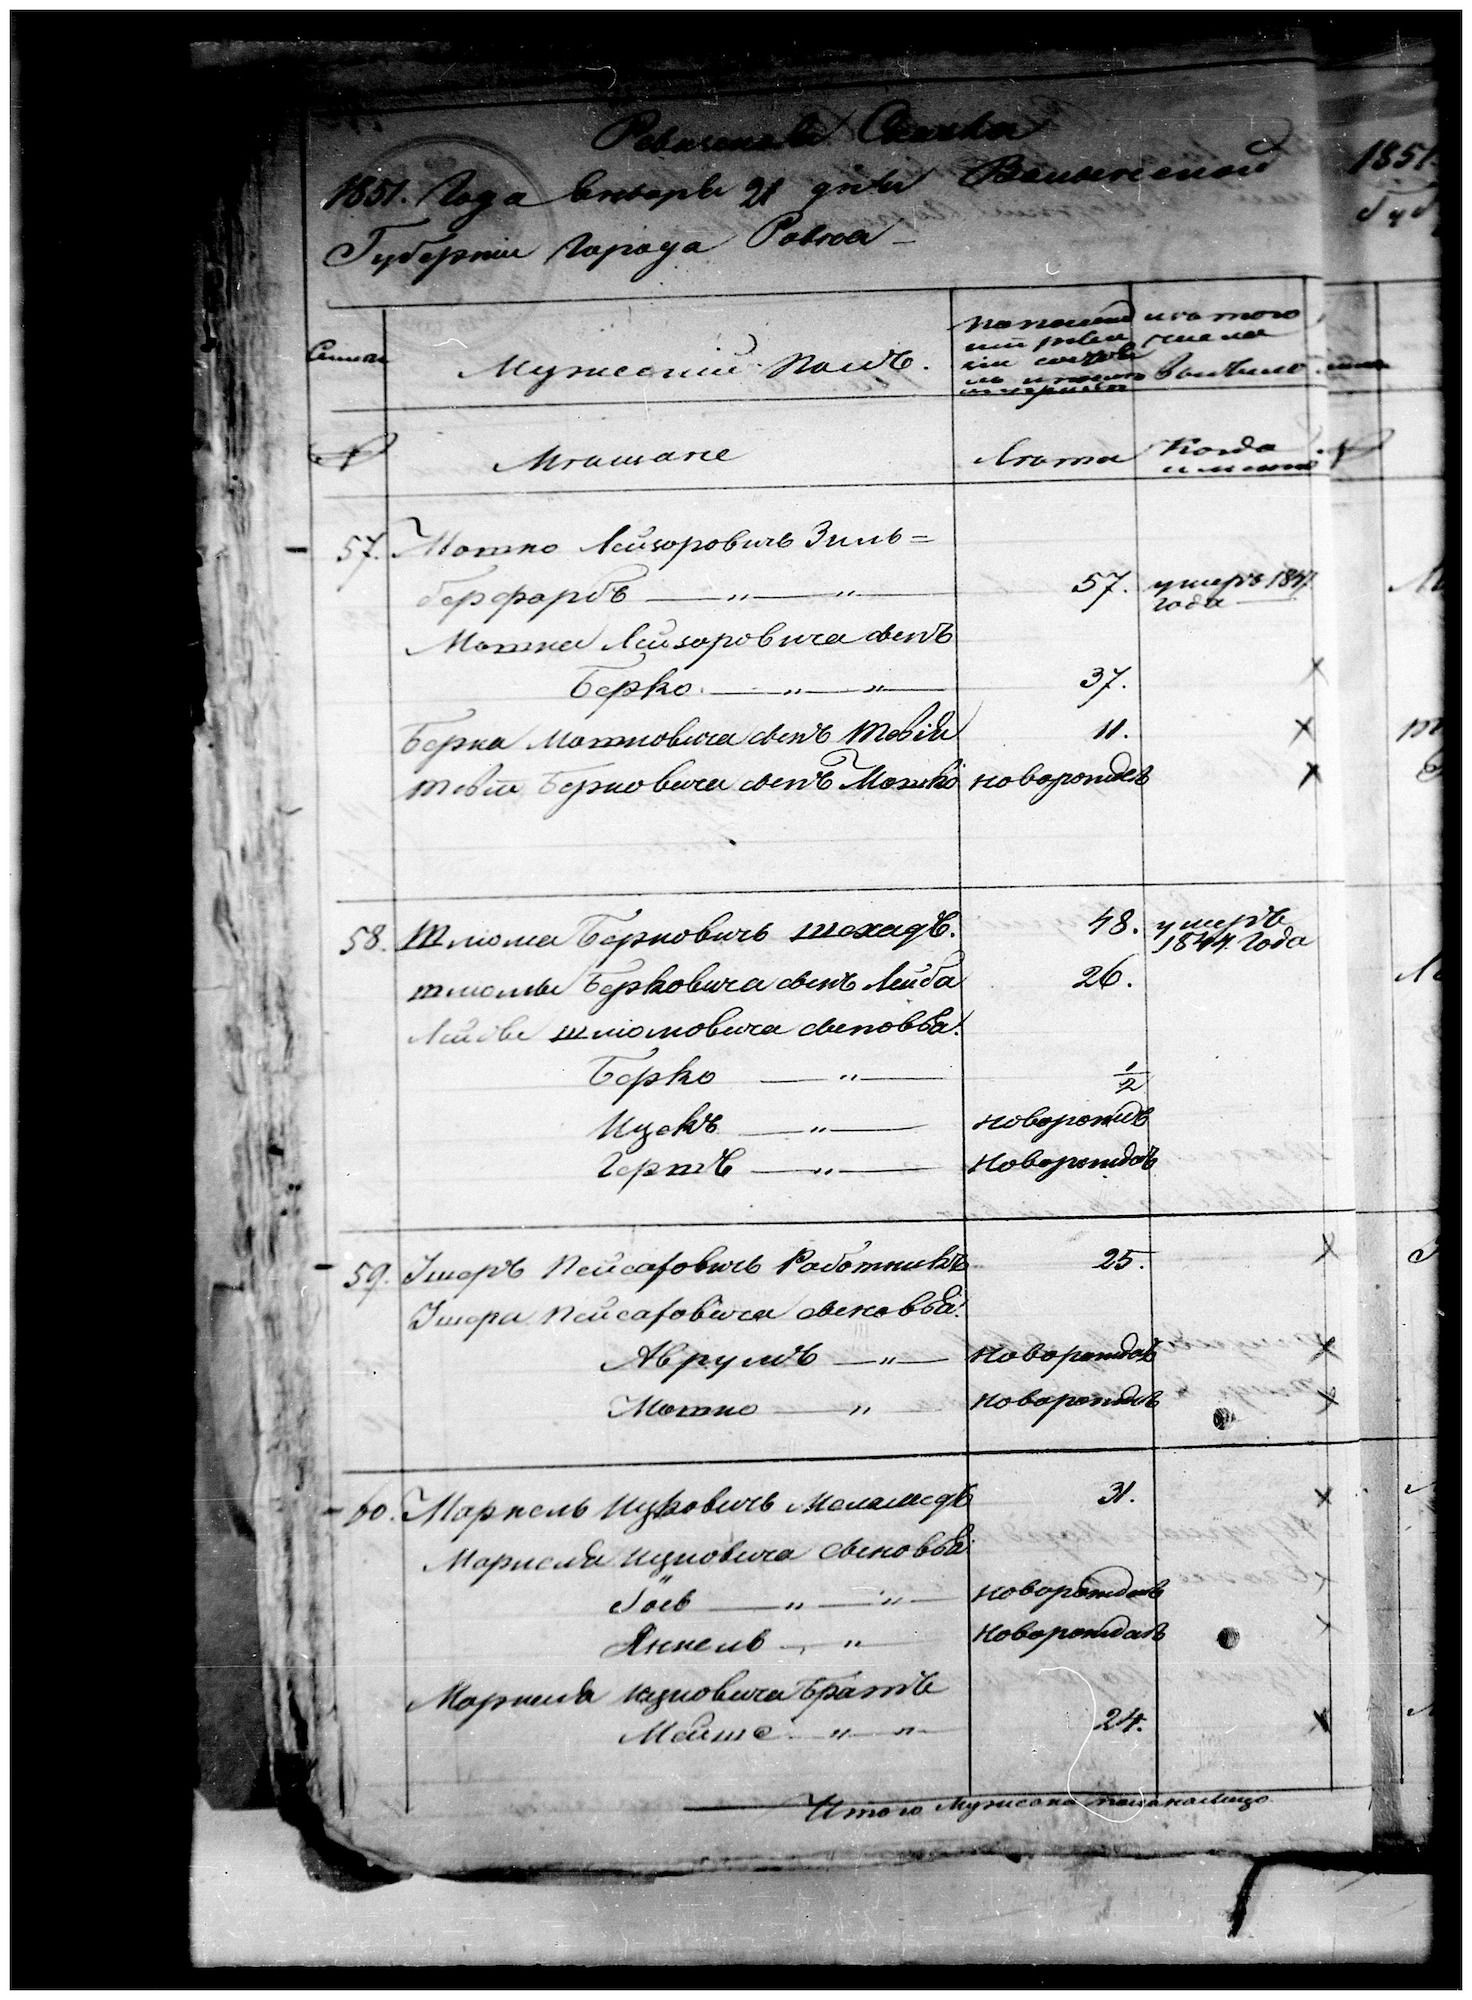 Ревижская Сказка
1851. Года Января 21 дня Волынской
Губернии Города Ровна
Семьи
Мужеский полъ.
По последней ревизіи состояло и после
изъ того числа выбыло
№
Мещане
Лета
Когда именно
57. Мошко Лейзоровичъ Зиль=
берфарбъ — " — " 57. умеръ 1847 года
Мошка Лейзоровича сынъ
Берко — " — " 37.
Берка Мошковича сынъ Тевій 11.
Тевія Берковича сынъ Мошко новорожденъ
58. Шлома Берковичъ Шохадъ. 48. умеръ 1847 Года
Шломы Берковича сынъ Лейба 26.
Лейбы Шломовича сыновья:
Берко — " 1/2
Ицекъ — " новорожденъ
Гершъ — " новорожденъ
59. Ушеръ Пейсаховичъ Работникъ 25.
Ушера Пейсаховича сыновья:
Аврумъ — " новорожденъ
Мошко — " новорожденъ
60. Маркель Ицковичъ Меламедъ 31.
Маркеля Ицковича сыновья
Іосъ — " — " новорожденъ
Янкель — " новорожденъ
Маркеля Ицковича братъ
Мейше — " " 24.
Итого Мужеска пола налицо
1851
Губ